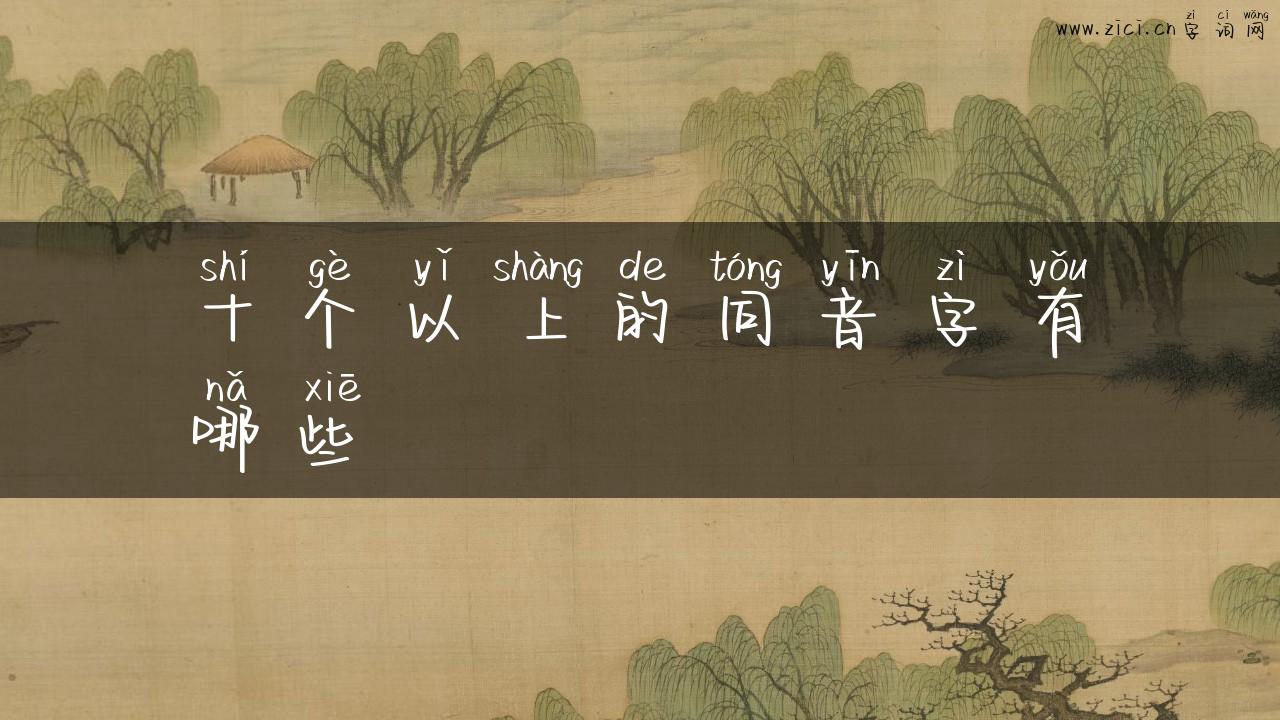 zì cí wǎng
www.zici.cn 字词网
shí gè yǐ shàng de tóng yīn zì yǒu
十个以上的同音字有
nǎ xiē
哪些